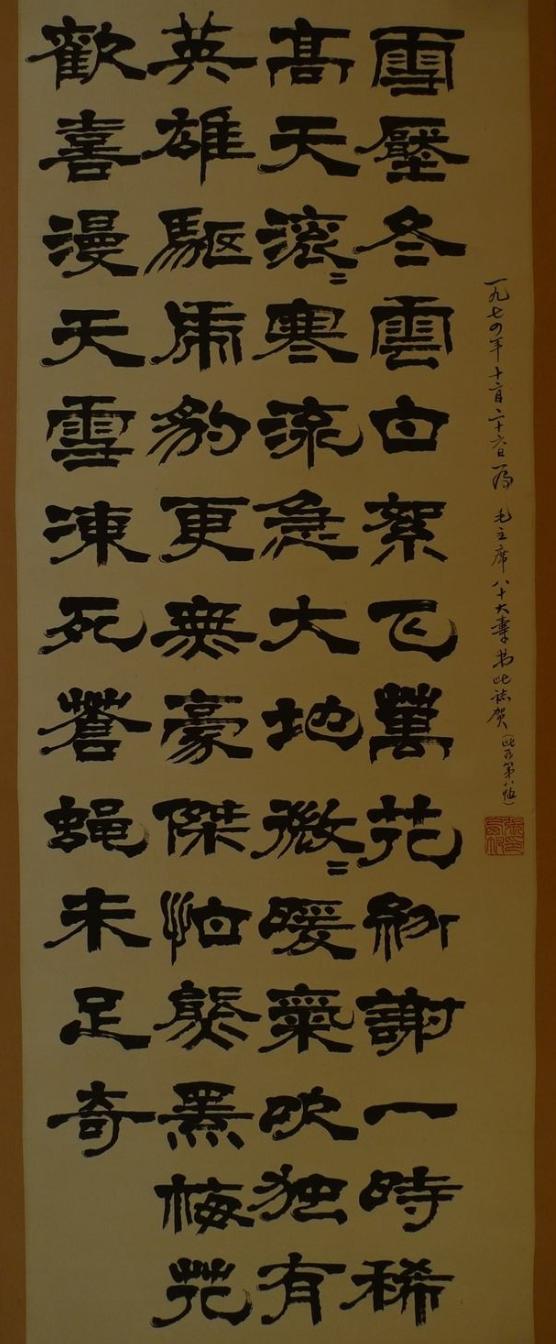 一九七四年十二月二十六日為 毛主席八十大寿书此誌贺（此乃第八幅）
雪壓冬雲白絮飞萬花紛謝一時稀
髙天滚〻寒流急大地微〻暖氣吹独有
英雄駆虎豹更無豪傑怕熊羆梅花
歡喜漫天雪凍死蒼蝇未足奇